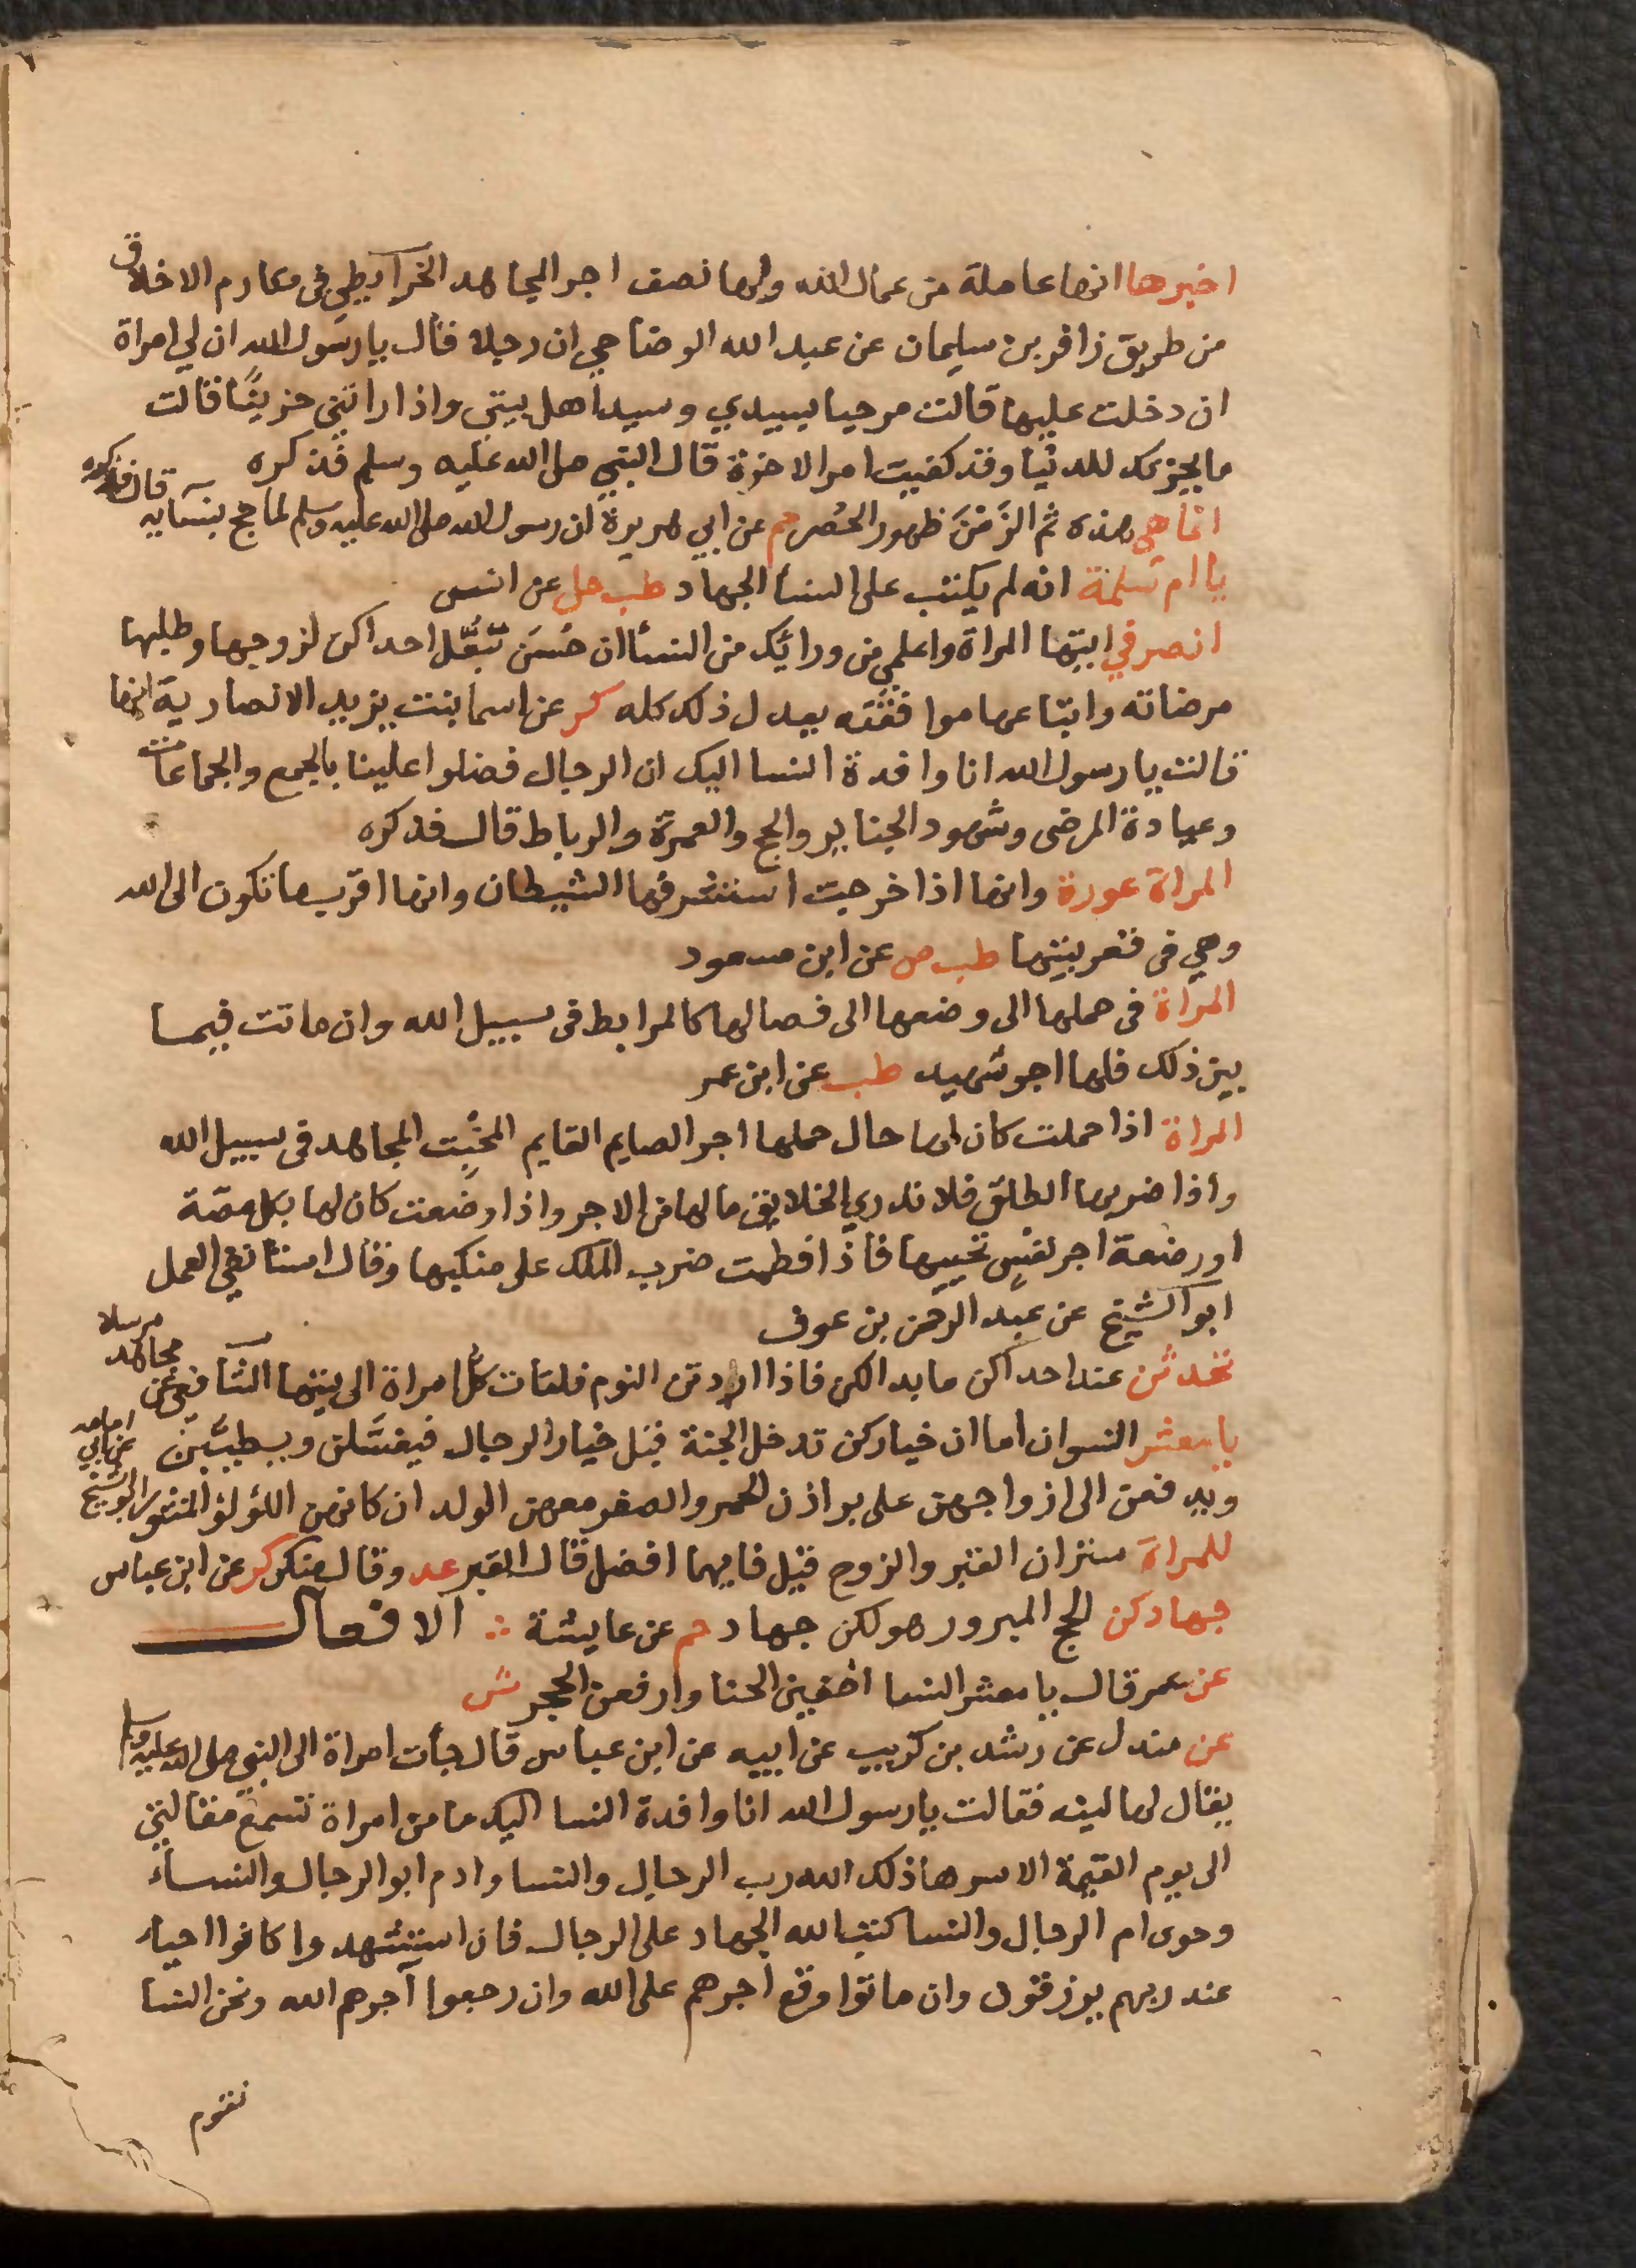 اخبرها انها عاملة من عمال الله ولها نصف اجر المجاهد الخرايطي في مكارم الاخلاق
من طريق زافر بن سليمان عن عبد الله الوضاحي ان رجلا قال يا رسول الله ان لي امراة
ان دخلت عليها قالت مرحبا بسيدي وسيد اهل بيتي واذا راتني حزينًا قالت
ما يحزنك للدنيا وقد كفيت امر الاخرة قال النبي صلى الله عليه وسلم فذكره
انما هي هذه ثم الزَمْنَ ظهور الحُصر حم عن ابي هريرة ان رسول الله صلى الله عليه وسلم لما حج بنسايه قال فذكره
يا ام سلمة انه لم يكتب على النسا الجهاد طب حل عن انس
انصرفي ايتها المراة واعلمي من ورائك من النسا ان حُسَن تَبَعُّل احداكن لزوجها وطلبها
مرضاته واتباعها موافقته يعدل ذلك كله كر عن اسما بنت يزيد الانصارية انها
قالت يا رسول الله انا وافدة النسا اليك ان الرجال فضلوا علينا بالجمع والجماعات
وعيادة المرضى وشهود الجنايز والحج والعمرة والرباط قال فذكره
المراة عورة وانها اذا خرجت استشرفها الشيطان وانها اقرب ما تكون الى الله
وهي في قعر بيتها طب ص عن ابن مسعود
المراة في حملها الى وضعها الى فصالها كالمرابط في سبيل الله وان ماتت فيما
بين ذلك فلها اجر شهيد طب عن ابن عمر
المراة اذا حملت كان لها حال حملها اجر الصايم القايم المخبت المجاهد في سبيل الله
واذا ضربها الطلق فلا تدري الخلايق ما لها من الاجر واذا وضعت كان لها بكل مصّة
او رضعة اجر نفس تحييها فاذا فطمت ضرب الملك على منكبها وقال استانفي العمل
ابو الشيخ عن عبد الرحمن بن عوف
تحدثن عند احداكن ما بدا لكن فاذا اردتن النوم فلتات كل امراة الى بيتها الشافعي عن مجاهد مرسلا
يا معشر النسوان اما ان خياركن تدخل الجنة قبل خيار الرجال فيغسَّلن ويطيبَّن
ويدفعن الى ازواجهن على براذن الحمر والصفر معهن الولدان كانهن اللؤلؤ المنثور ابو الشيخ عن ابي امامه
للمراة ستران القبر والزوج قيل فايهما افضل قال القبر عد وقال منكر كر عن ابن عباس
جهادكن الحج المبرور هو لكن جهاد حم عن عايشة ∴ الافعال
عن عمر قال يا معشر النسا اخفين الحنا وارفعن الحجر ش
عن مندل عن رشد بن كريب عن ابيه عن ابن عباس قال جات امراة الى النبي صلى الله عليه وسلم
يقال لها ليثه فقالت يا رسول الله انا وافدة النسا اليك ما من امراة تسمع مقالتي
الى يوم القيمة الا سرها ذلك الله رب الرجال والنسا وادم ابو الرجال والنساء
وحوى ام الرجال والنسا كتب الله الجهاد على الرجال فان استشهدوا كانوا احياء
عند ربهم يرزقون وان ماتوا وقع اجرهم على الله وان رجعوا آجرهم الله ونحن النسا
نقوم